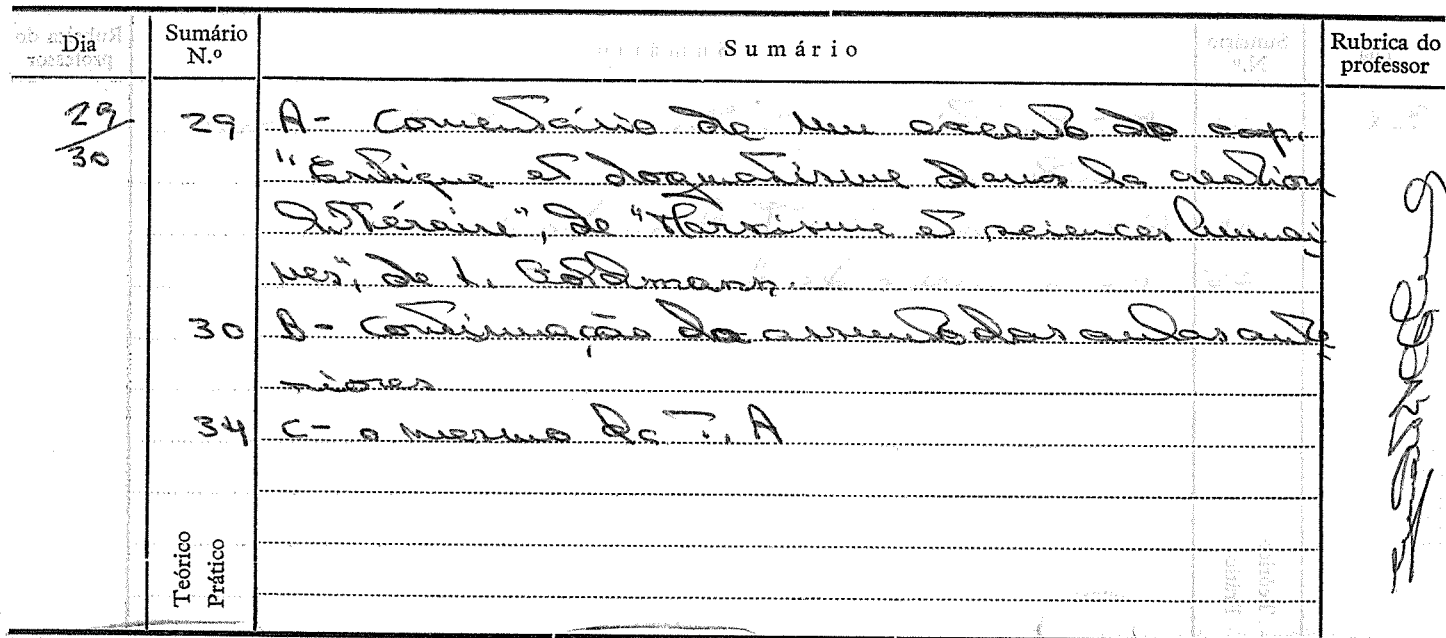 Dia
Sumário N.º
Sumário
Rubrica do professor
29/30
29 A - Comentário de um excerto do cap.
"Critique et dogmatisme dans la création
littéraire", de "Marxisme et sciences humai
nes", de L. Goldmann.
30 B - Continuação do assunto das aulas ante
riores
34 C - o mesmo da T. A
Teórico
Prático